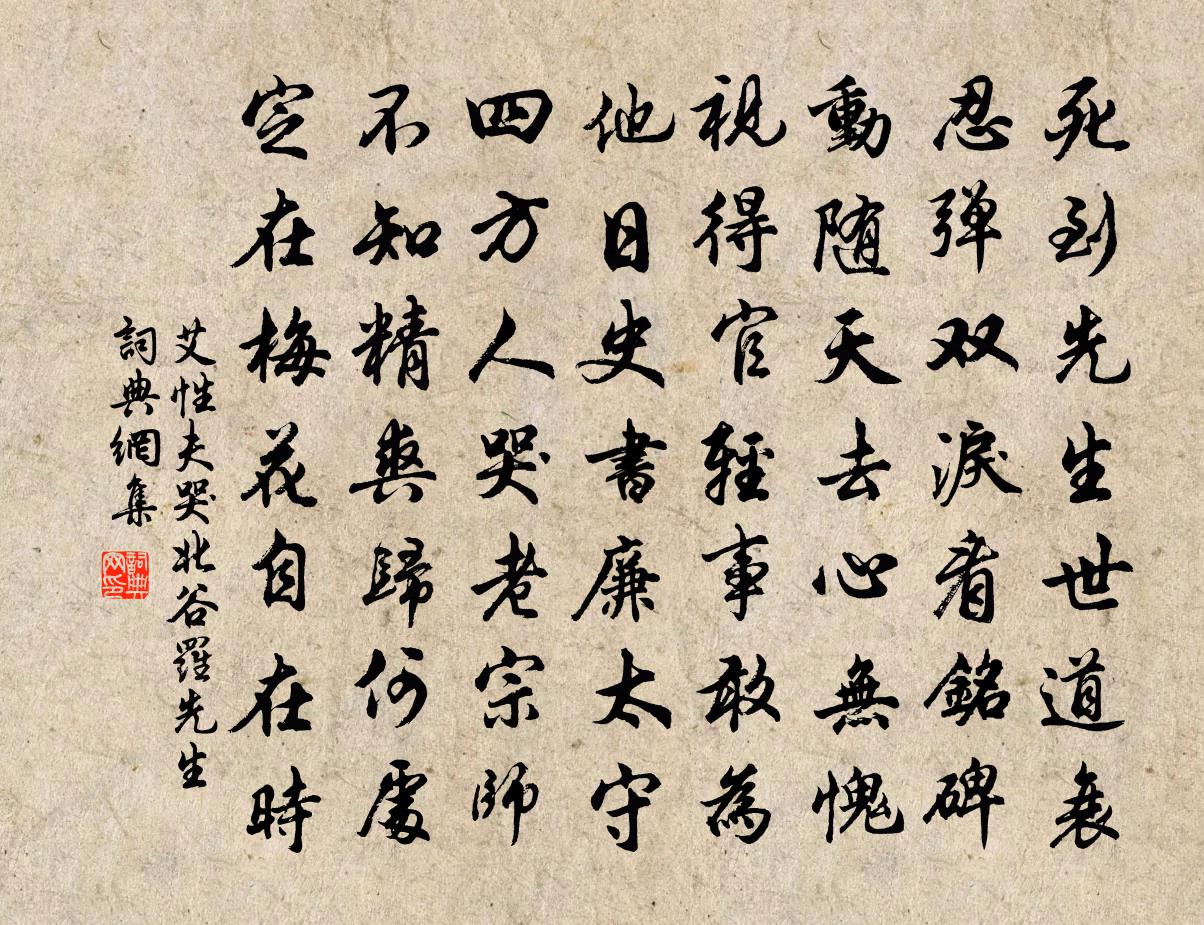 死到先生世道衰
忍弹双淚看銘碑
動随天去心無愧
視得官輕事敢為
他日史書廉太守
四方人哭老宗師
不知精爽歸何處
定在梅花自在時
艾性夫哭北谷羅先生
詞典網集
詞典网印